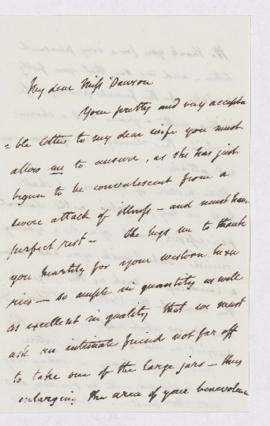 My dear Miss Dawson
Your pretty and very accepta
=ble letter to my dear wife you must
allow me to answer, as she has just
begun to be convalescent from a
severe attack of illness – and must have
perfect rest – She begs me to thank
you heartily for your
– so ample in quantity as well
as excellent in quality that we must
ask an intimate friend not far off
to take one of the large jars – thus
enlarging the area of your benevolence